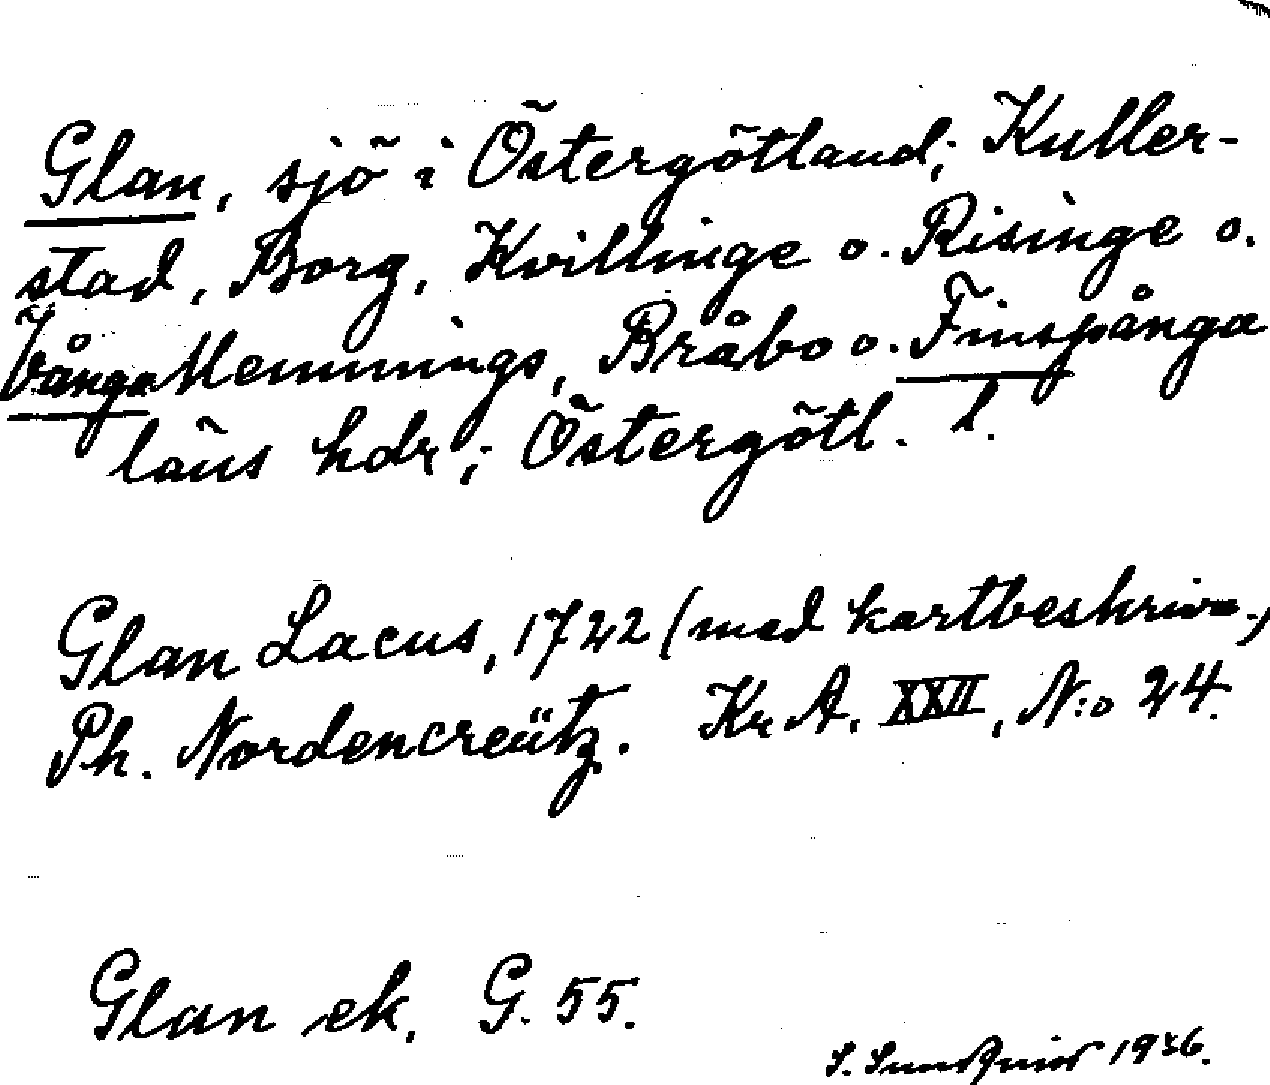 Glan, sjö i Östergötland; Kuller-
stad, Borg, Kvillinge o. Risinge o.
Vånga Memmings, Bråbo o. Finspånga
läns hdr; Östergötl. l.
Glan Lacus, 1722 (med kartbeskriv.,
Ph. Nordencreütz. Kr A. XXII, N:o 24.
Glan ek. G. 55.
S. 1936.